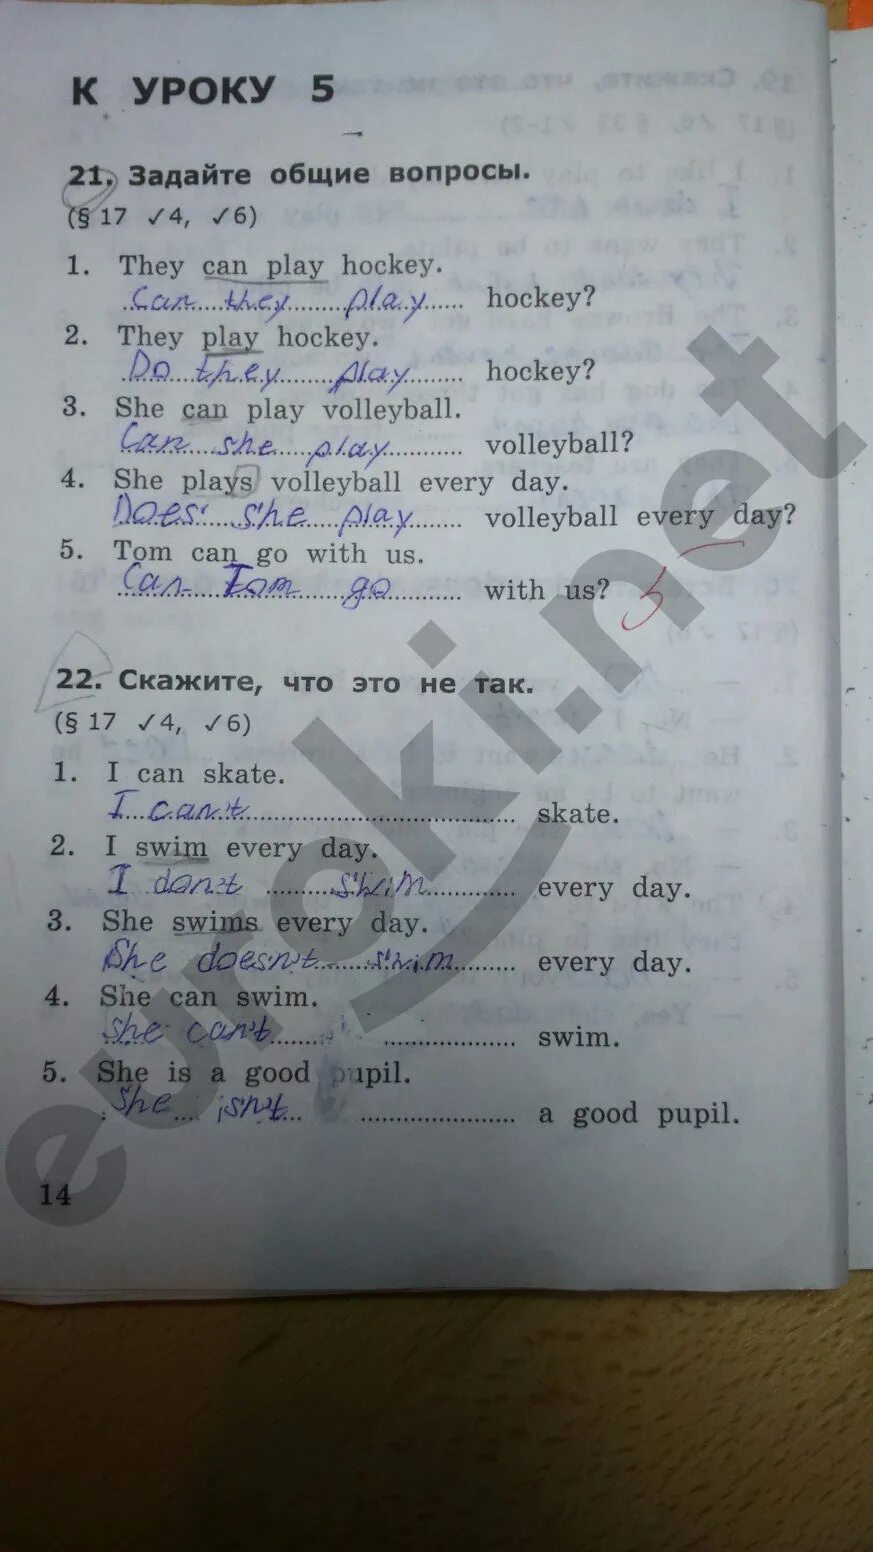 К УРОКУ 5
21. Задайте общие вопросы.
(§ 17 ✓4, ✓6)
1. They can play hockey.
Can they play hockey?
2. They play hockey.
Do they play hockey?
3. She can play volleyball.
Can she play volleyball?
4. She plays volleyball every day.
Does she play volleyball every day?
5. Tom can go with us.
Can Tom go with us?
5
22. Скажите, что это не так.
(§ 17 ✓4, ✓6)
1. I can skate.
I can't skate.
2. I swim every day.
I don't swim every day.
3. She swims every day.
She doesn't swim every day.
4. She can swim.
She can't swim.
5. She is a good pupil.
She isn't a good pupil.
14
euroki.net